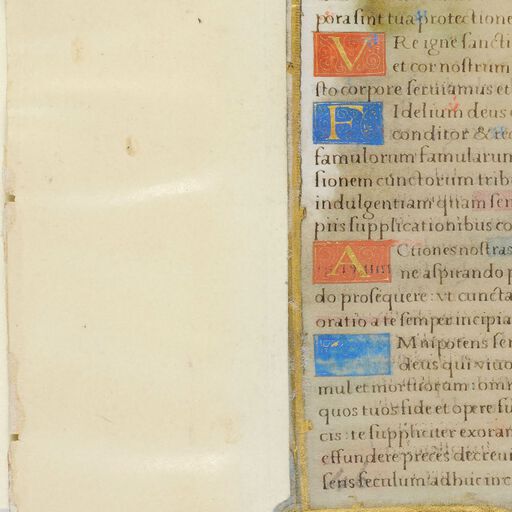 pora sint tua protectione
V Re igne sancti
et cor nostrum
sto corpore seruiamus et
F Idelium deus
conditor &
famulorum famularum
sionem cunctorum trib
indulgentiam quam sem
piis supplicationibus co
A Ctiones nostras
ne aspirando p
do prosequere: vt cuncta
oratio a te semper incipia
Mnipotens sem
deus qui viuo
mul et mortuorum: omn
quos tuos fide et opere fu
cis: te suppliciter exoram
effundere preces decreu
sens seculum adhuc in c